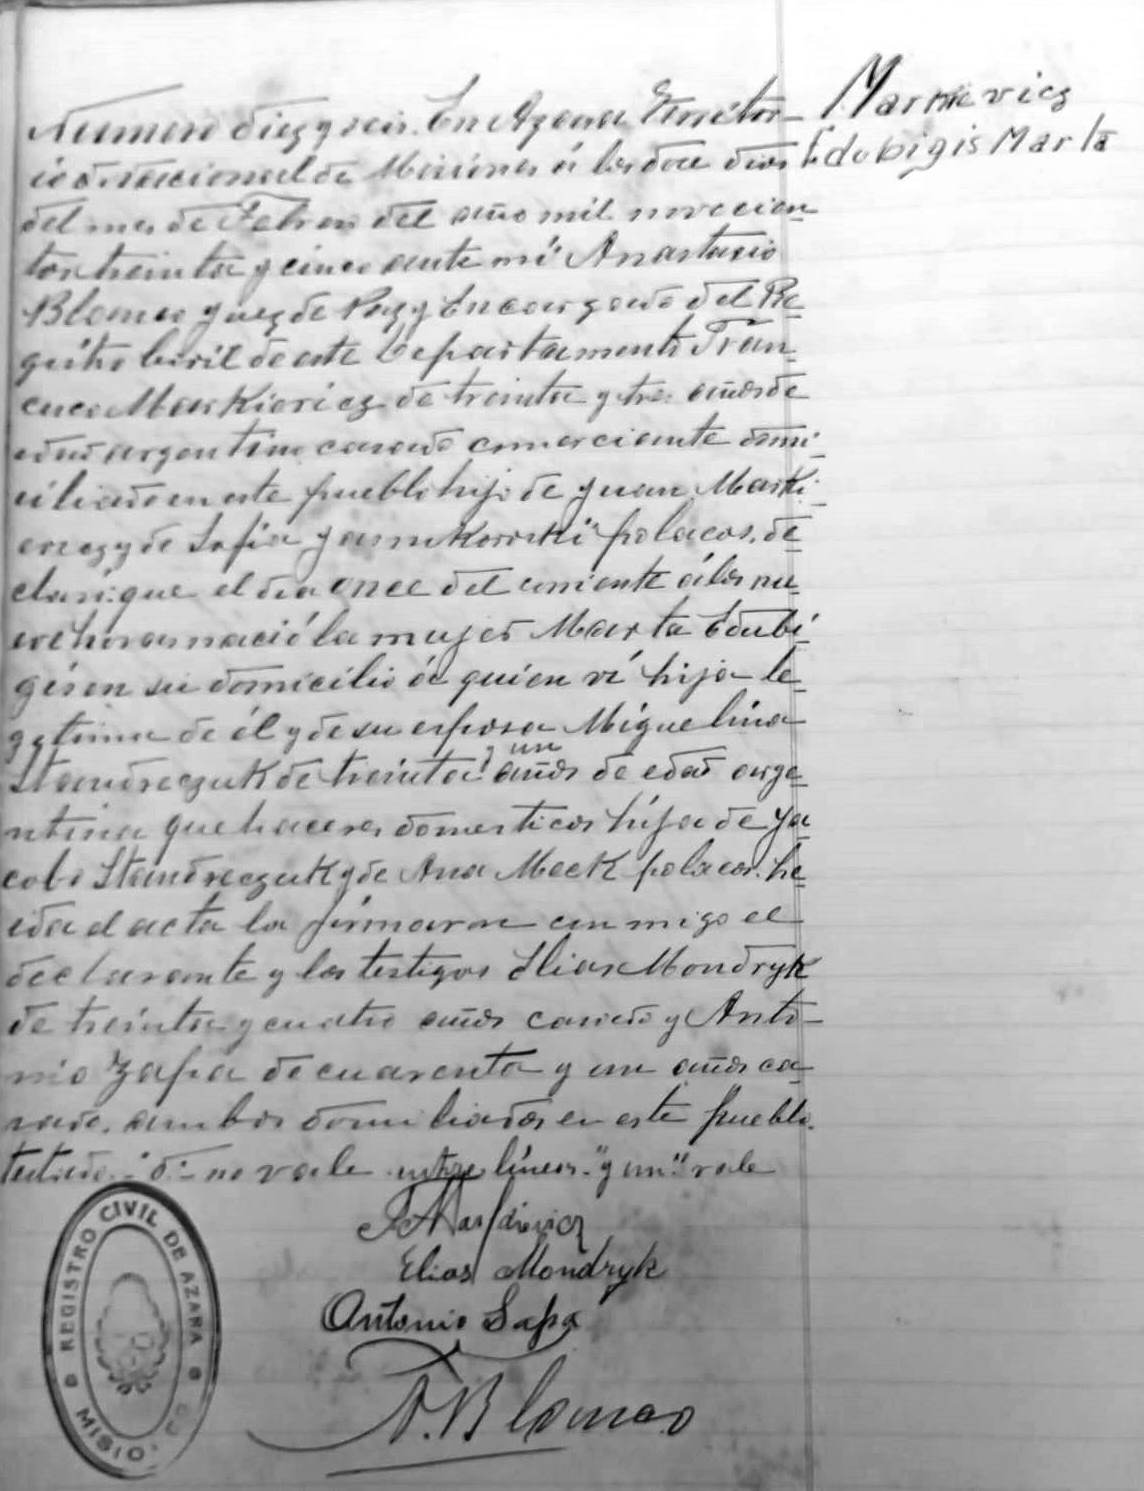 Markievicz
Edubigis Marta
Numero diez y seis. En Azara Territor-
io Nacional de Misiones á los doce dias
del mes de Febrero del año mil novecien-
tos treinta y cinco ante mi Anastacio
Blanco Juez de Paz y Encargado del Re-
gistro Civil de este Departamento Fran-
cisco Markievicz de treinta y tres años de
edad argentino casado comerciante domi-
ciliado en este pueblo hijo de Juan Marki-
evicz y de Sofia polacos. de-
claró: que el dia once del corriente á las nu-
eve horas nació la mujer Marta Edubi-
gis en su domicilio á quien ví hija le-
gitima de él y de su esposa Miguelina
Standreczuk de treinta y un años de edad arge-
ntina quehaceres domesticos hija de Ya-
cobo Standreczuk y de Ana Meck polacos. le-
ida el acta la firmaron conmigo el
declarante y los testigos Elias Mondryk
de treinta y cuatro años casado y Anto-
nio Zapa de cuarenta y un años ca-
sado. ambos domiliados en este pueblo.
testado-"d"- no vale entre líneas-"y un" vale
F Markievicz
Elias Mondryk
Antonio Sapa
A. Blanco
REGISTRO CIVIL DE AZARA
MISIO